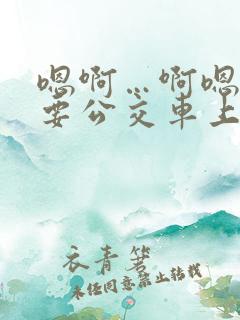 嗯啊…啊嗯
要公交车上
衣青箬
未经同意禁止转载